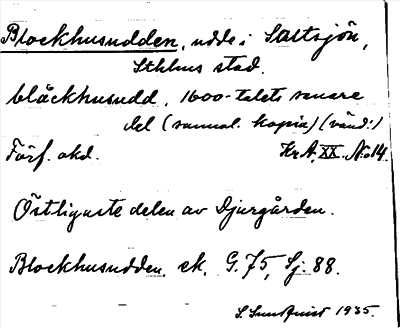 Blockhusudden, udde i Saltsjön,
Sthlms stad.
blåckhusudd, 1600-talets senare
del (samml. kopia) (vänd!)
Förf. okd. Kr.A. XX. No 14.
Östligaste delen av Djurgården.
Blockhusudden. ek. G. 75, Sj. 88.
S. Sundquist 1935.